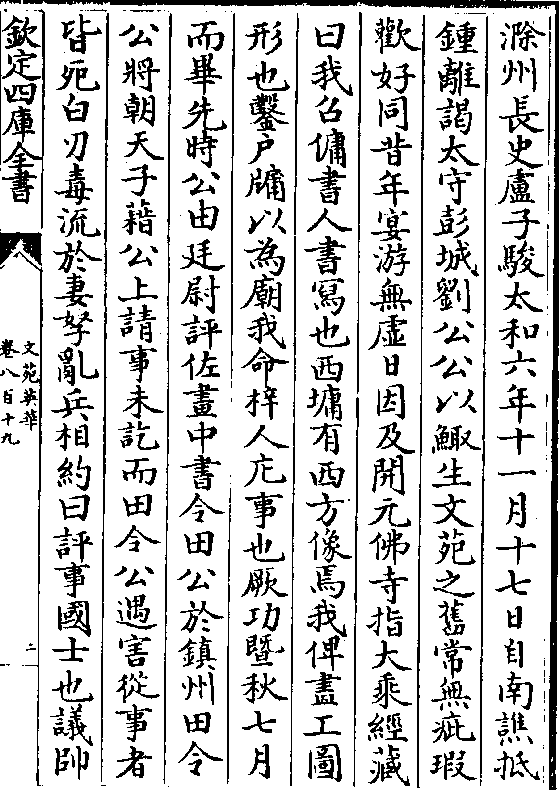 滁州長史盧子駿太和六年十一月十七日自南譙抵
鍾離謁太守彭城劉公公以鯫生文苑之舊常無疵瑕
歡好同昔年宴游無虛日因及開元佛寺指大乘經藏
曰我召傭書人書寫也西墉有西方像焉我俾畫工圖
形也鑿戶牖以為廟我命梓人庀事也厥功暨秋七月
而畢先時公由廷尉評佐畫中書令田公於鎮州田令
公將朝天子藉公上請事未訖而田令公遇害從事者
皆死白刃毒流於妻孥亂兵相約曰評事國士也議帥
欽定四庫全書
文苑英華
卷八百十九
二